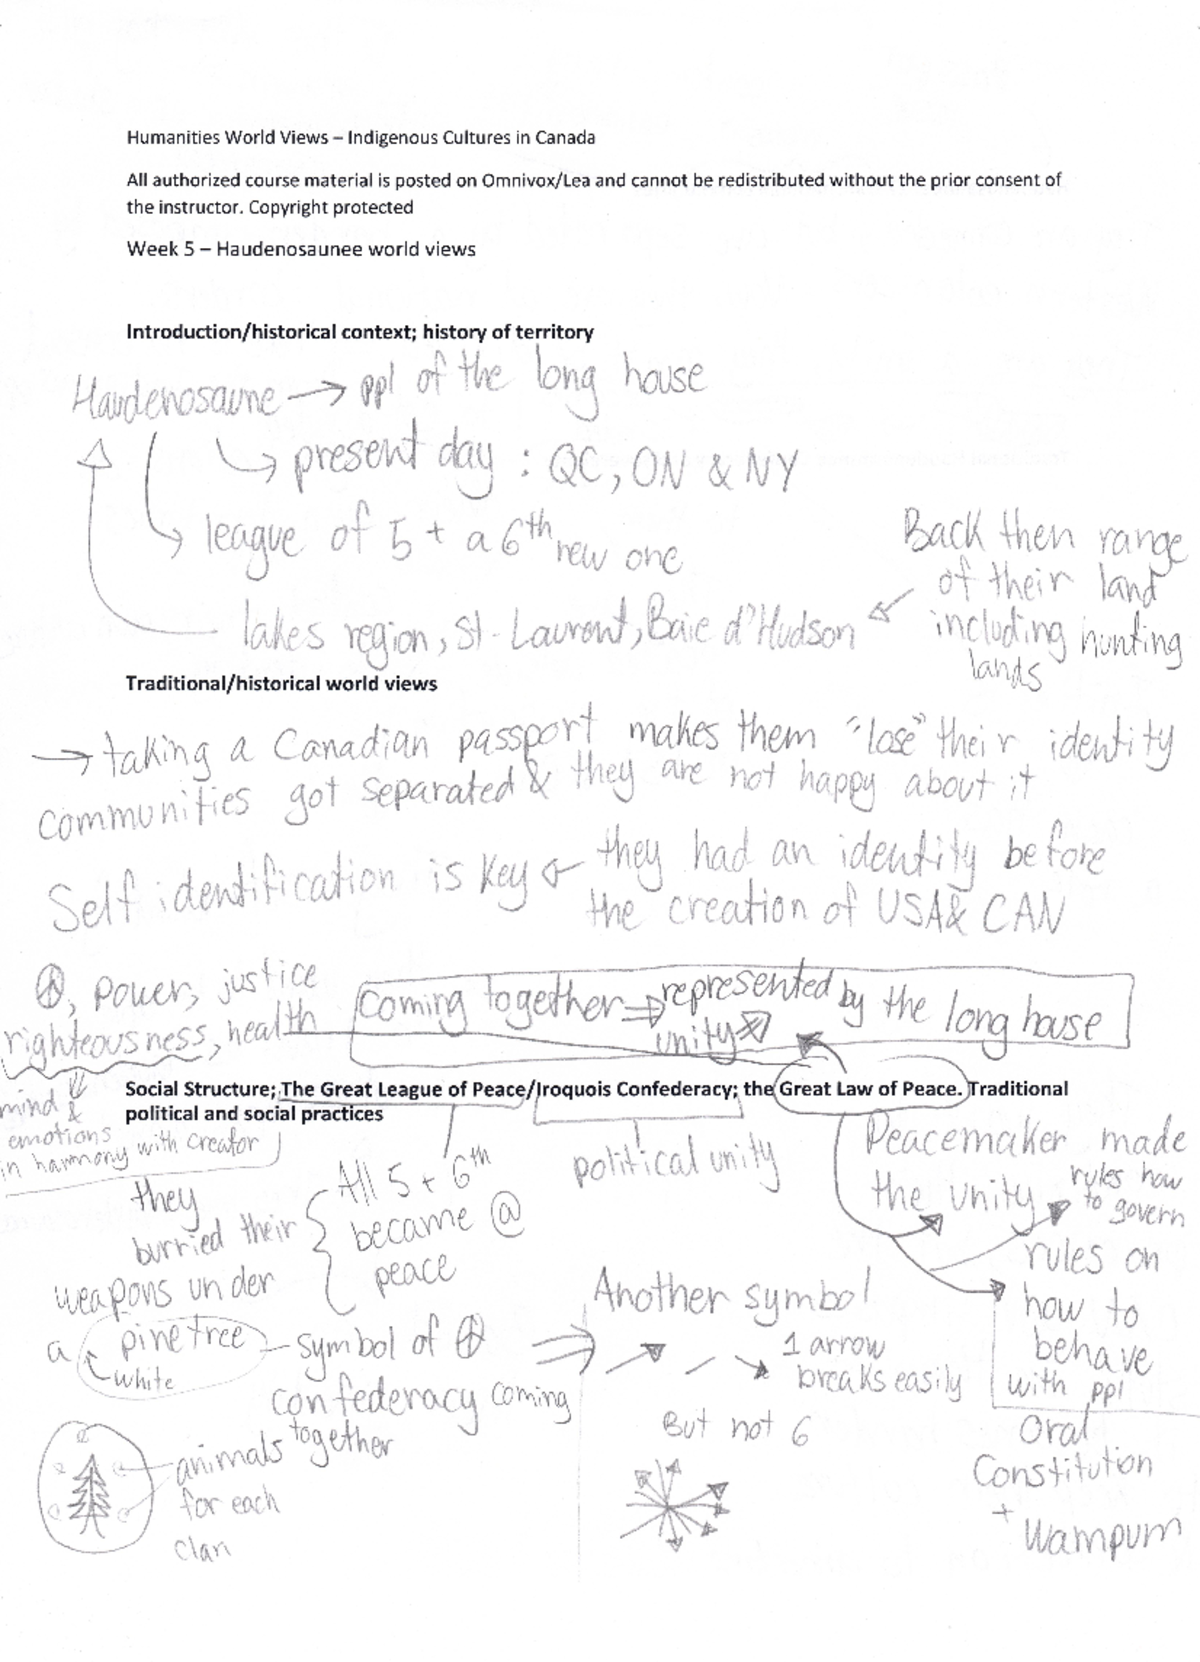 Humanities World Views – Indigenous Cultures in Canada
All authorized course material is posted on Omnivox/Lea and cannot be redistributed without the prior consent of
the instructor. Copyright protected
Week 5 – Haudenosaunee world views
Introduction/historical context; history of territory
Haudenosaune → ppl of the long house
present day : QC, ON & NY
league of 5 + a 6th new one
Back then range
of their land
including hunting
lands
lakes region, St-Laurent, Baie d'Hudson
Traditional/historical world views
→ taking a Canadian passport makes them "lose" their identity
communities got separated & they are not happy about it
Self identification is key ← they had an identity before
the creation of USA & CAN
☮, power, justice
righteousness, health
coming together ⇒ represented by the long house
unity
mind &
emotions
in harmony with creator
Social Structure; The Great League of Peace/Iroquois Confederacy; the Great Law of Peace. Traditional
political and social practices
All 5 + 6th
became @
peace
they
burried their
weapons under
a pine tree
white
symbol of ☮
confederacy coming
together
animals
for each
clan
political unity
Another symbol
1 arrow
breaks easily
But not 6
Peacemaker made
the unity
rules how
to govern
rules on
how to
behave
with ppl
Oral
Constitution
+
Wampum